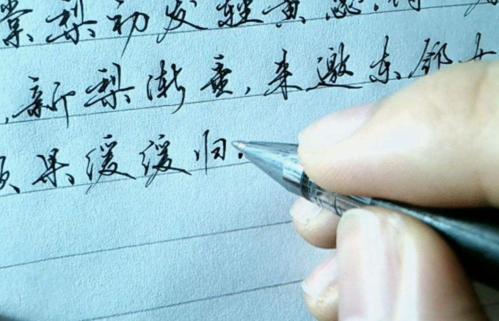 棠梨初发轻黄
,新梨渐黄,来邀东邻女
果缓缓归.